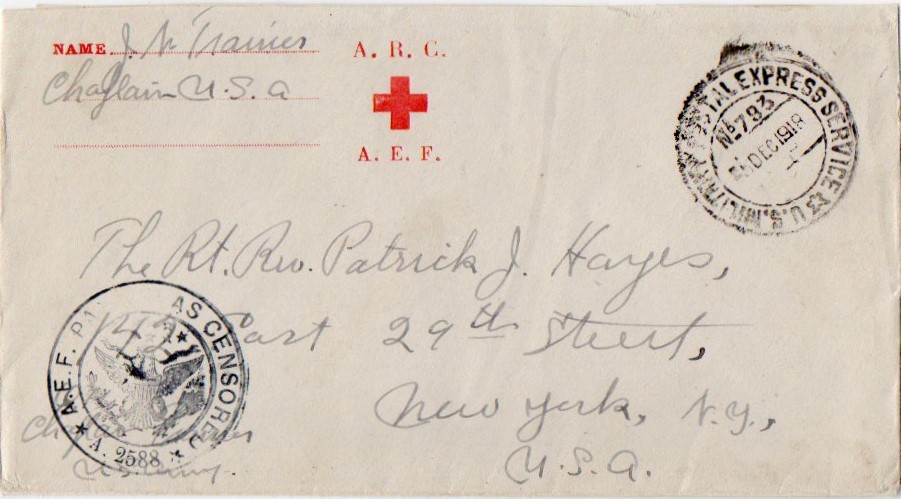 NAME J. N. Trainer
Chaplain U.S.A
A. R. C.
A. E. F.
U.S. MILITARY POSTAL EXPRESS SERVICE
No 793
DEC 1918
The Rt. Rev. Patrick J. Hayes,
142 East 29th Street,
New York, N.Y.,
U.S.A.
A.E.F. PASSED AS CENSORED
A. 2588
U.S. Army.